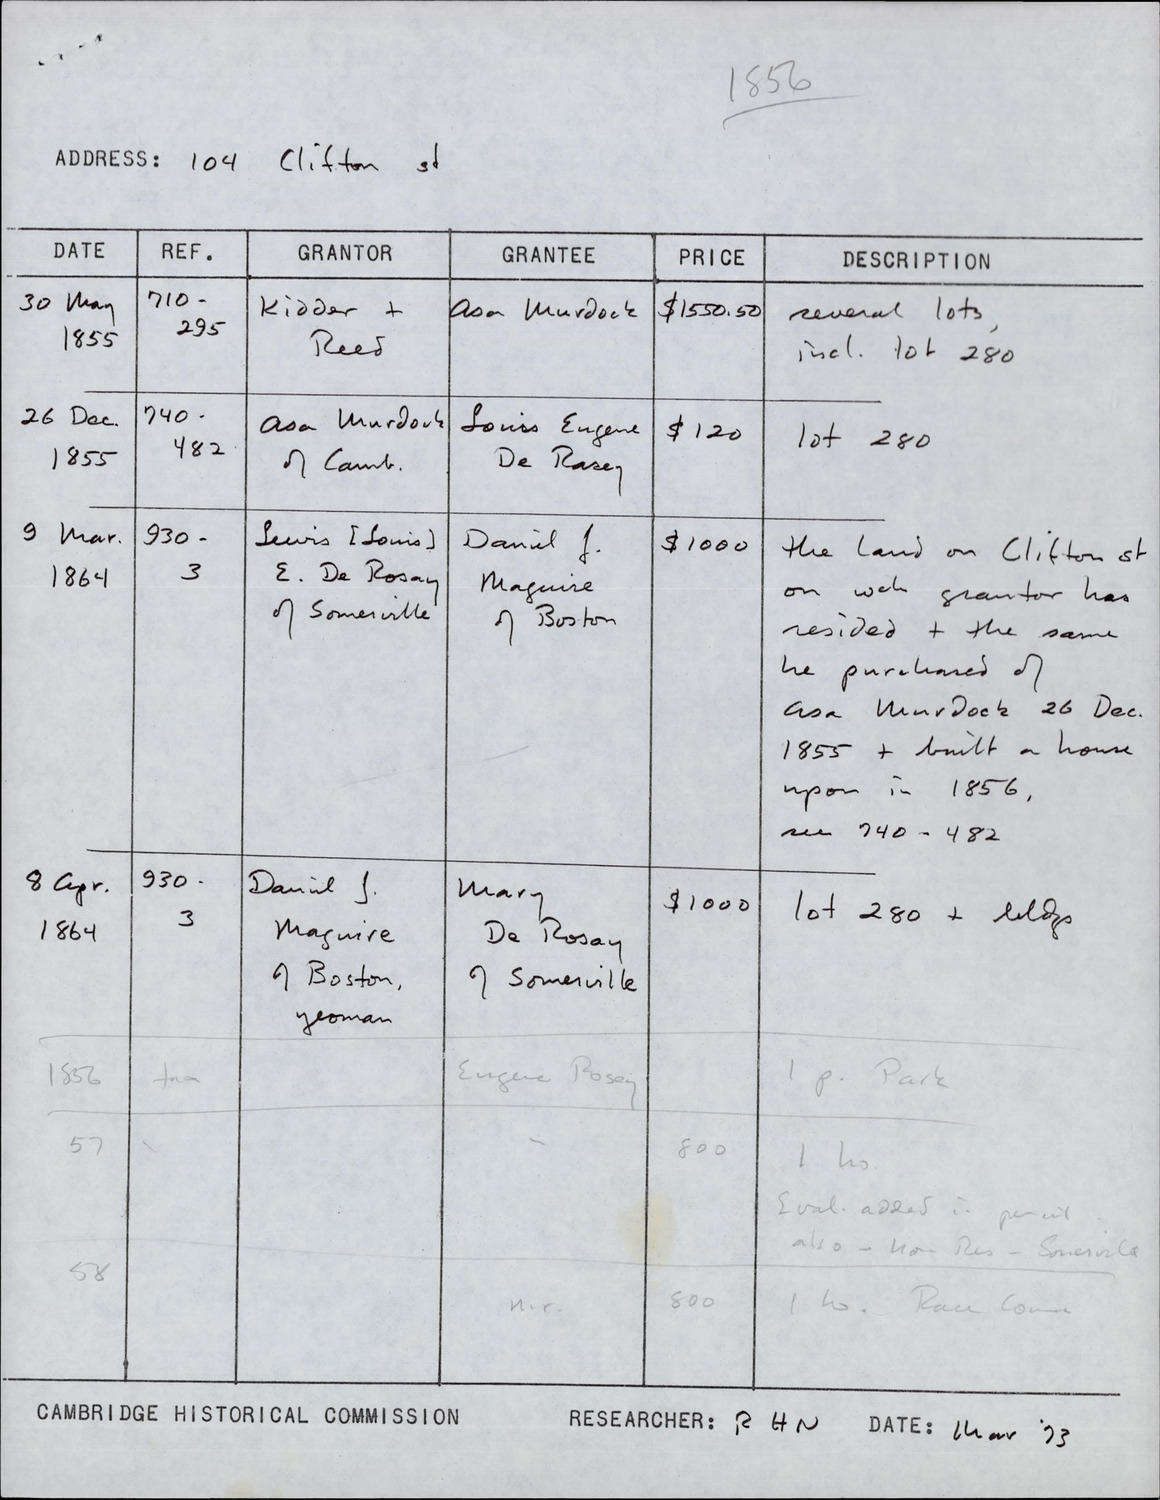 1856
ADDRESS: 104 Clifton st
DATE REF. GRANTOR GRANTEE PRICE DESCRIPTION
30 May 1855
710-295
Kidder + Reed
Asa Murdock
$1550.50
several lots,
incl. lot 280
26 Dec. 1855
740-482
Asa Murdock
of Camb.
Louis Eugene
De Rasey
$120
lot 280
9 Mar. 1864
930-3
Lewis [Louis]
E. De Rosay
of Somerville
Daniel J.
Maguire
of Boston
$1000
the land on Clifton st
on wch grantor has
resided + the same
he purchased of
Asa Murdock 26 Dec.
1855 + built a house
upon in 1856,
see 740-482
8 Apr. 1864
930-3
Daniel J.
Maguire
of Boston,
yeoman
Mary
De Rosay
of Somerville
$1000
lot 280 + bldgs
1856
Eugene Rosey
1 p. Park
57
800
1 ho
Eval. added in pencil
also - Non Res - Somerville
58
n.r.
800
1 ho. Race Course
CAMBRIDGE HISTORICAL COMMISSION RESEARCHER: R H N DATE: Mar '73